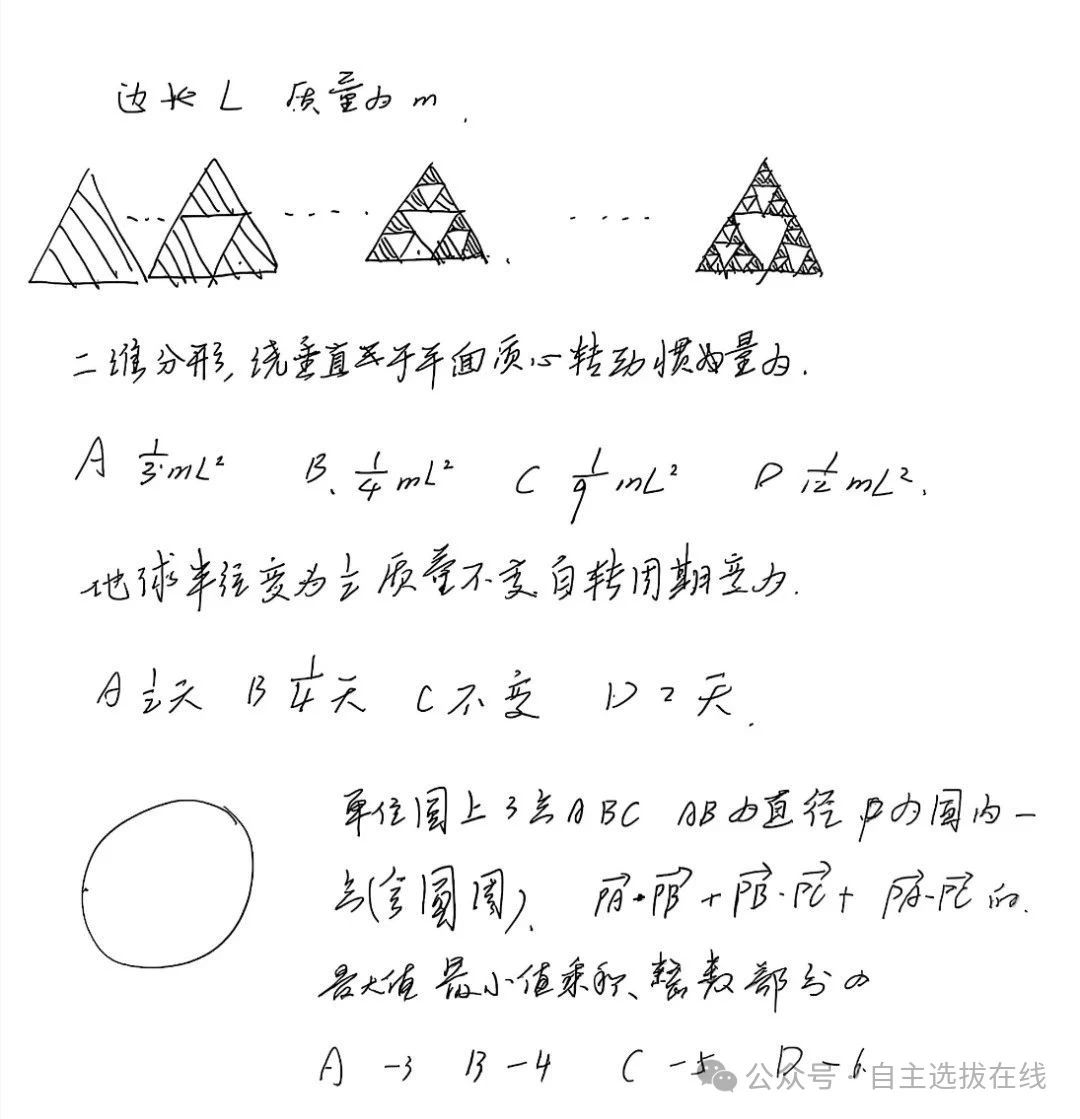 边长 L 质量为 m.
二维分形, 绕垂直于平面质心转动惯量为.
A 1/3 mL² B. 1/4 mL² C 1/9 mL² D 1/12 mL².
地球半径变为 1/2 质量不变 自转周期变为.
A 1/2天 B 1/4天 C 不变 D 2天.
单位圆上3点ABC AB为直径 P为圆内一
点(含圆周). PA·PB + PB·PC + PA·PC 的.
最大值 最小值乘积、整数部分为
A -3 B -4 C -5 D -6.
公众号·自主选拔在线